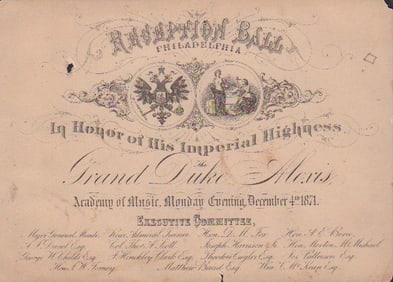 RECEPTION BALL
PHILADELPHIA
In Honor of His Imperial Highness
the
Grand Duke Alexis,
Academy of Music, Monday Evening, December 4th 1871.
EXECUTIVE COMMITTEE,
Major General Meade, Rear Admiral Turner, Hon. D. M. Fox, Hon. A. E. Borie,
A. J. Drexel Esq. Col. Thos. A. Scott, Joseph Harrison Jr. Hon. Morton McMichael
George W. Childs Esq. J. Hinckley Clark Esq. Theodore Cuyler Esq. Jos. Patterson Esq.
Matthew Baird Esq. Wm. V. McKean Esq.